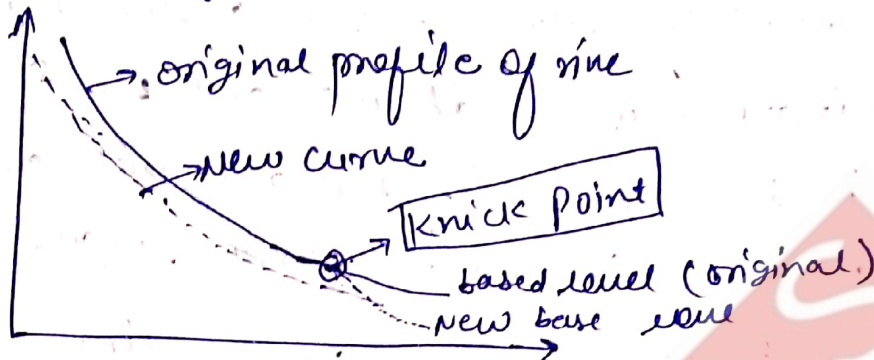 original profile of rive
New curve
Knick Point
based level (original)
New base level